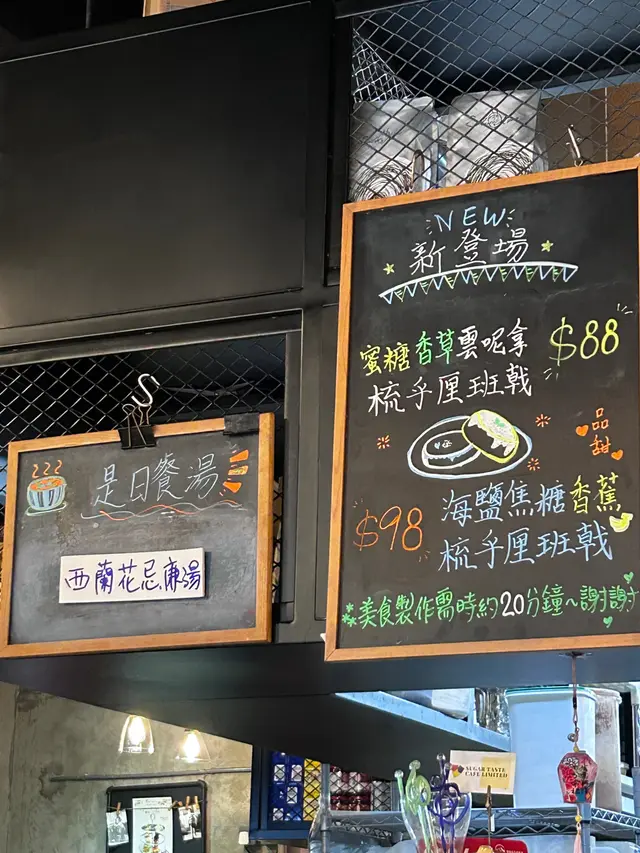 NEW
新登場
蜜糖香草雲呢拿 $88
梳乎厘班戟
品
甜
$98 海鹽焦糖香蕉
梳乎厘班戟
*美食製作需時約20分鐘~謝謝
是日餐湯
西蘭花忌廉湯
SUGAR TASTE
CAFE LIMITED